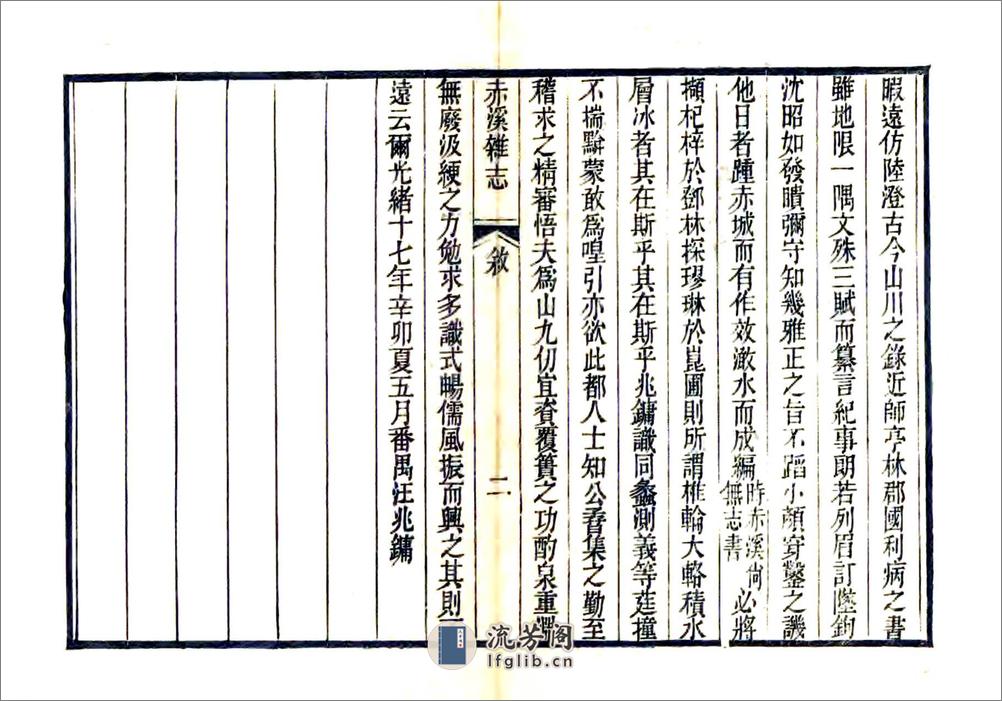 暇遠仿陸澄古今山川之錄近師亭林郡國利病之書
雖地限一隅文殊三賦而纂言紀事朗若列眉訂墜鉤
沈昭如發聵彌守知幾雅正之旨不蹈小顏穿鑿之譏
他日者踵赤城而有作效澉水而成編時赤溪尙無志書必將
擷杞梓於鄧林探璆琳於崑圃則所謂椎輪大輅積水
層冰者其在斯乎其在斯乎兆鏞識同蠡測義等莛撞
不揣黭蒙敢爲喤引亦欲此都人士知公蒼集之勤至
稽求之精審悟夫爲山九仞宜資覆簣之功酌泉重
赤溪雜志
敘
二
無廢汲綆之力勉求多識式暢儒風振而興之其則
遠云爾光緒十七年辛卯夏五月番禺汪兆鏞
流芳阁
lfglib.cn